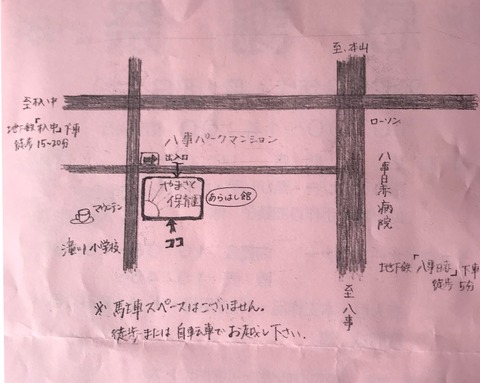 至.本山
至杁中
地下鉄「杁中」下車
徒歩15~20分
ローソン
八事パークマンション
出入口
やまざと
保育園
あらはし館
マウンテン
滝川小学校
ココ
八事日赤病院
地下鉄「八事日赤」下車
徒歩5分
至八事
※ 駐車スペースはございません。
徒歩または自転車でお越し下さい。